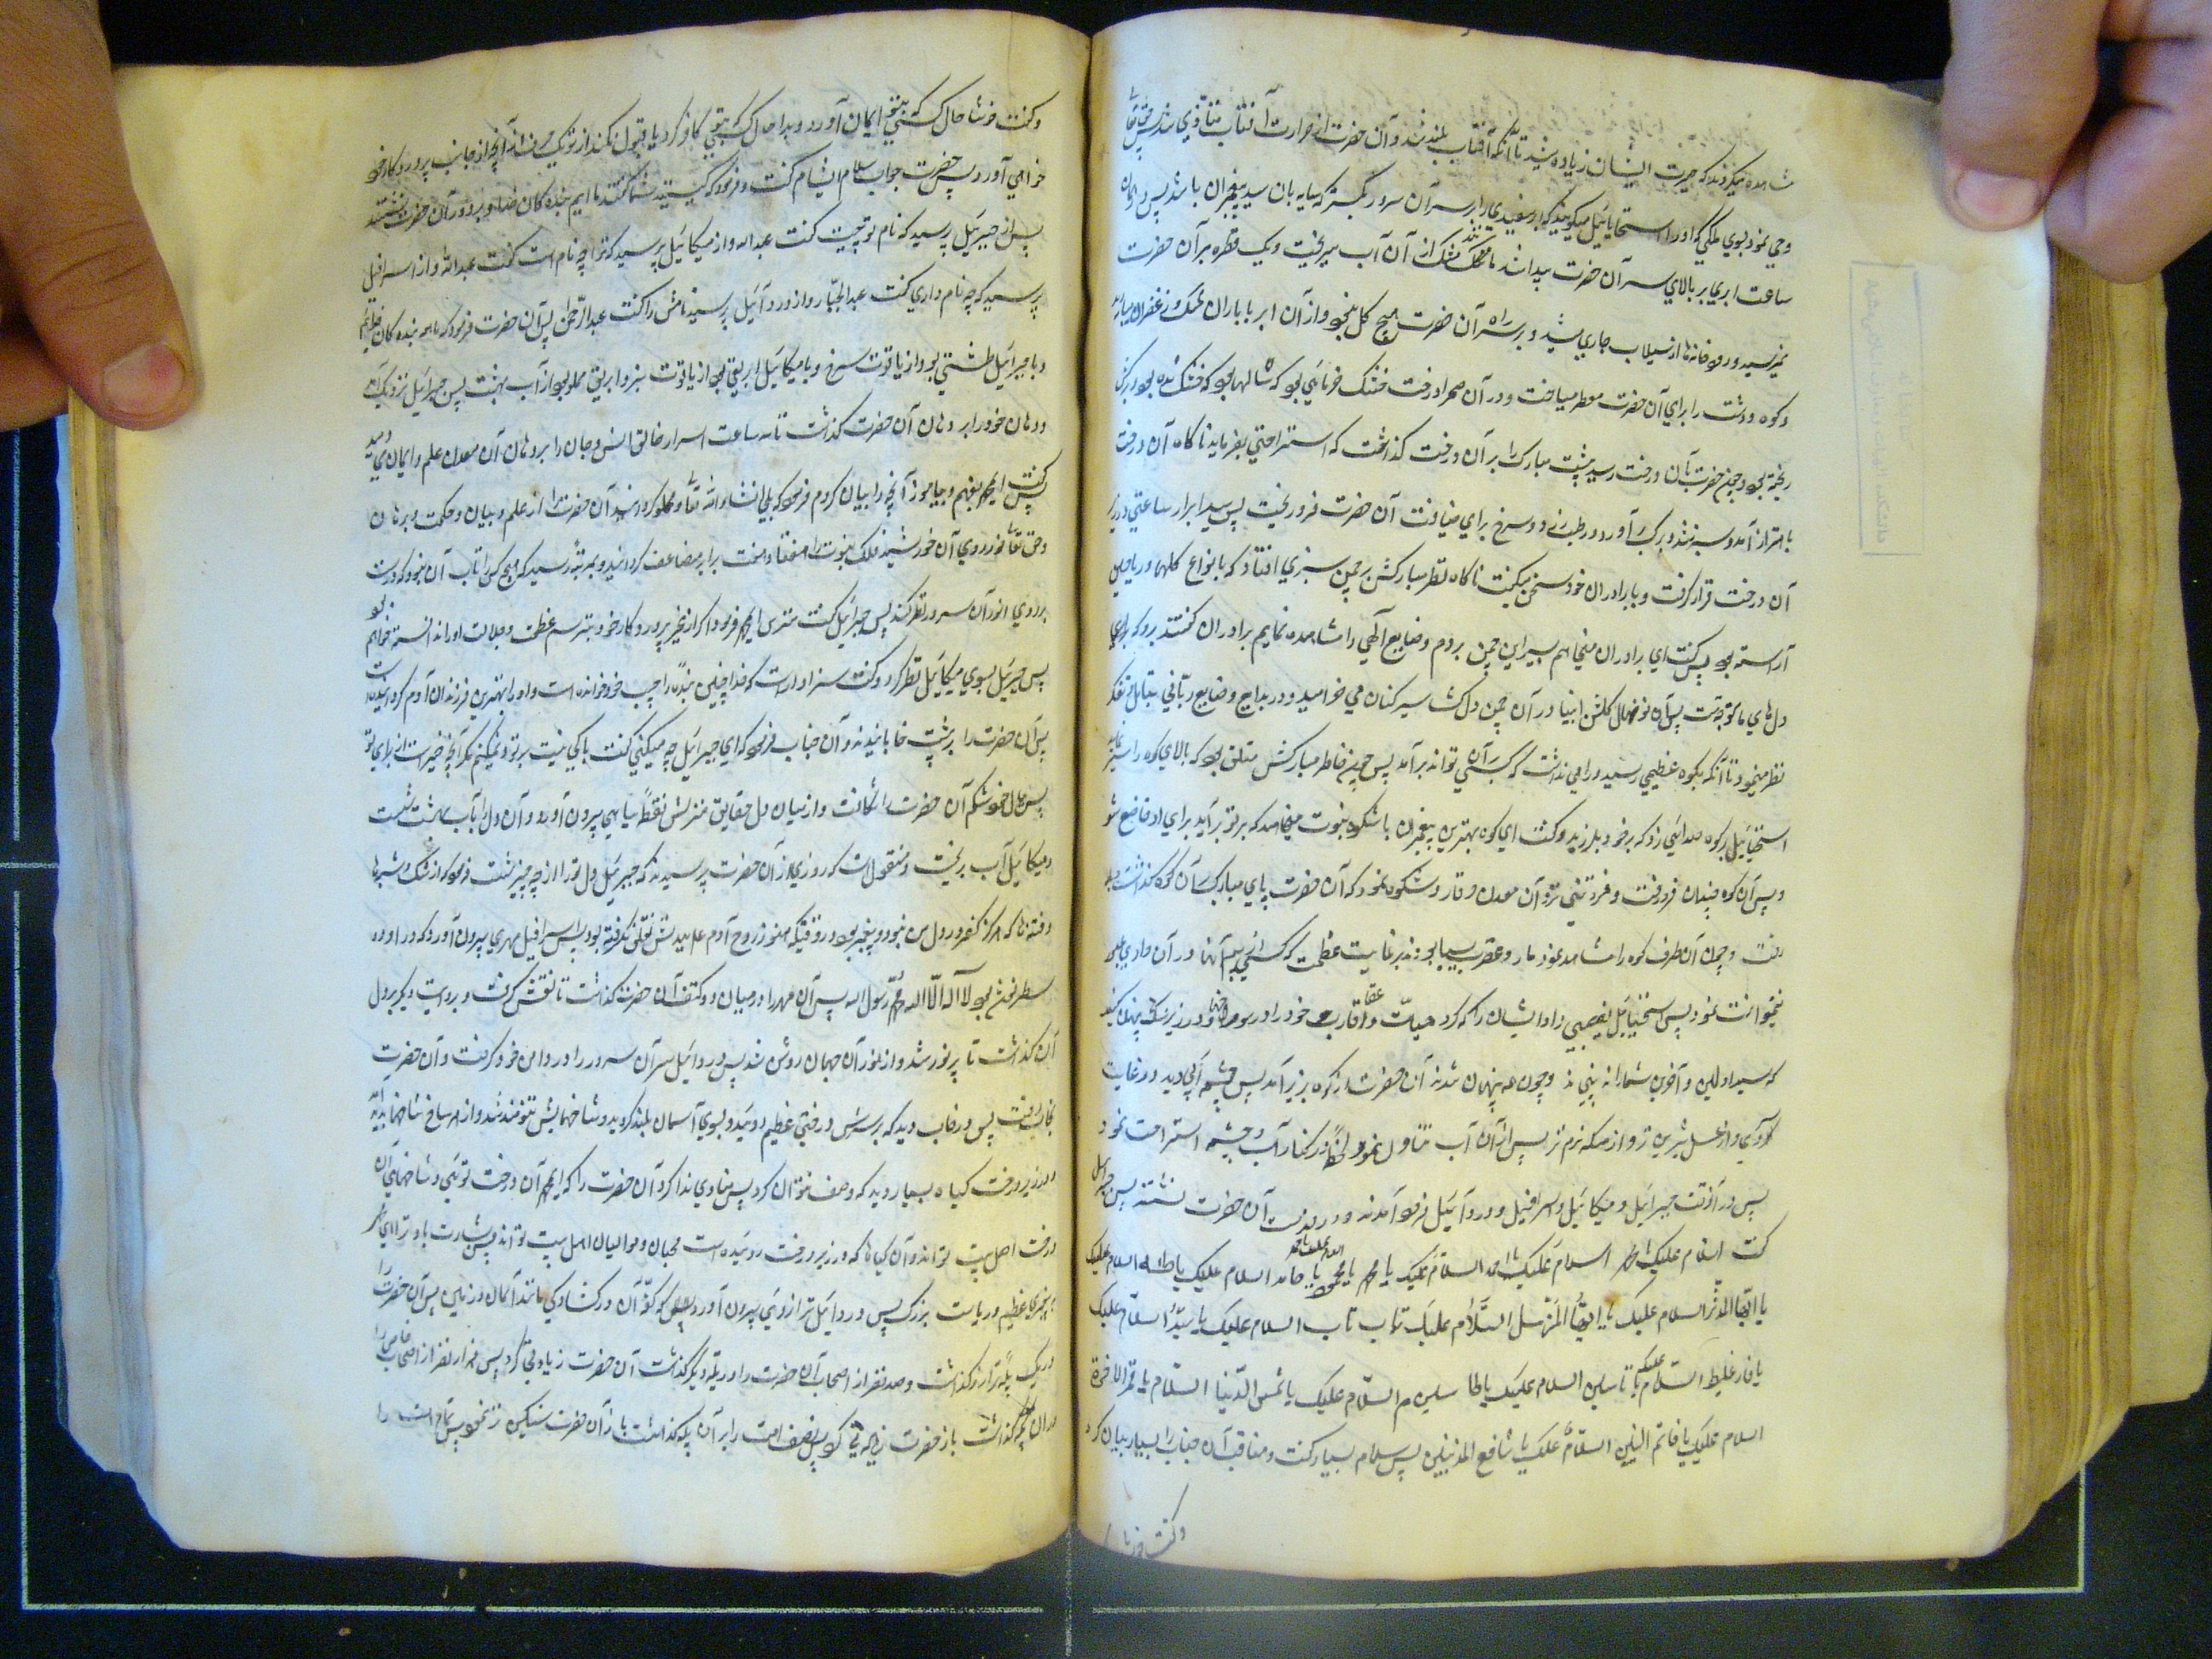 مشاهده میکردند که حیرت ایشان زیاده میشد تا آنکه آفتاب بلند شد و آن حضرت از حرارت آفتاب متأذی شد پس حق تعالی
وحی نمود بسوی ملکی که او را استحیائیل میگویند که ابر سفیدی را بر سر آن سرور بگستر که سایه بان سید پیغمبران باشد پس در همان
ساعت ابری بر بالای سر آن حضرت پیدا شد مانند مشک از آن آب میریخت و یک قطره بر آن حضرت
نمیرسید و رودخانه ها از سیلاب جاری میشد و بر سر راه آن حضرت هیچ گل نبود و از آن ابر باران مشک و زعفران میبارید
و کوه و دشت را برای آن حضرت معطر میساخت و در آن صحرا درخت خشک خرمائی بود که سالها بود که خشک شده بود و برگش
ریخته بود و چون حضرت بآن درخت رسید پشت مبارک را بر آن درخت گذاشت که استراحتی بفرماید ناگاه آن درخت
باهتزاز آمد و سبز شد و برگ برآورد و رطب زرد و سرخ برای ضیافت آن حضرت فرو ریخت پس سید ابرار ساعتی در زیر
آن درخت قرار گرفت و با برادران خود سخن میگفت ناگاه نظر مبارکش بر چمن سبزی افتاد که بانواع گلها و ریاحین
آراسته بود پس گفت ای برادران میخواهم بسیر این چمن بروم و صنایع الهی را مشاهده نمایم برادران گفتند برو که برای
دلهای ما توئی پس آن نونهال گلشن انبیا در آن چمن دلگشا سیر کنان می خرامید و در بدایع و صنایع ربانی بتأمل و تفکر
نظر مینمود تا آنکه بکوه عظیمی رسید و راهی نداشت که کسی بر آن تواند برآمد پس چون خاطر مبارکش متعلق بود که بالای کوه را سیر نماید
استحیائیل بر کوه صدائی زد که بر خود بلرزید و گفت ای کوه بهترین پیغمبران با شکوه نبوت میخواهد که بر تو برآید برای او خاضع شو
و پس آن کوه چندان فرو رفت و فروتنی نزد آن معدن وقار و شکوه نمود که آن حضرت پای مبارک بر آن کوه گذاشت و بالا
رفت و چون آن طرف کوه را مشاهده نمود مار و عقرب بسیار بودند بر غایت عظمت که کسی از بیم آنها در آن وادی عبور
نمیتوانست نمود پس استحیائیل نهیبی داد ایشان را که ای گروه حیات و عقارب خود را در سوراخها و در زیر سنگ پنهان کنید
که سید اولین و آخرین شما را نه بیند و چون همه پنهان شدند آن حضرت از کوه بزیر آمد پس چشمه آبی دید در غایت
گوارائی و از عسل شیرین تر و از مسکه نرم تر پس از آن آب تناول نمود و لحظه در کنار آب و چشمه استراحت نمود
پس در آنوقت جبرائیل و میکائیل و اسرافیل و دردائیل فرود آمدند و در خدمت آن حضرت نشستند پس جبرائیل
گفت السلام علیک یا محمد السلام علیک یا احمد السلام علیک یا محمود السلام علیک یا حامد السلام علیک یا طه السلام علیک
یا ایها المدثر السلام علیک یا ایها المزمل السلام علیک یا طاب طاب السلام علیک یا سید السلام علیک
یا فارقلیط السلام علیک یا یاسین السلام علیک یا طاسین میم السلام علیک یا شمس الدنیا السلام علیک یا قمر الاخرة
السلام علیک یا خاتم النبیین السلام علیک یا شافع المذنبین پس سلام بسیار گفت و مناقب آن جناب را بسیار بیان کرد
و گفت خوشا
و گفت خوشا حال کسی که بتو ایمان آورد و بدا حال کسی که بتو کافر گردد یا قبول نکند از تو یک حرف از آنچه از جانب پروردگار خود
خواهی آورد پس حضرت جواب سلام ایشان گفت و فرمود که کیستید شما گفتند ما ایم بنده گان خدا و بر دور آن حضرت نشستند
پس از جبرئیل پرسید که نام تو چیست گفت عبدالله و از میکائیل پرسید که ترا چه نام است گفت عبدالله و از اسرافیل
پرسید که چه نام داری گفت عبدالجبار و از دردائیل پرسید نامش را گفت عبدالرحمن پس آن حضرت فرمود که ما همه بنده گان خدائیم
و با جبرائیل طشتی بود از یاقوت سرخ و با میکائیل ابریقی بود از یاقوت سبز و ابریق مملو بود از آب بهشت پس جبرائیل نزدیک آمد
و دهان خود را بر دهان آن حضرت گذاشت تا سه ساعت اسرار خالق انس و جان را بر دهان آن معدن علم و ایمان می دمید
پس گفت ای محمد بفهم و بیاموز آنچه را بیان کردم فرمود که بلی انشاء الله تعالی و مملو گردانید آن حضرت را از علم و بیان و حکمت و برهان
و حق تعالی نور روی آن خورشید فلک نبوت را هفتاد و هفت برابر مضاعف گردانید و بمرتبه رسید که هیچکس را تاب آن نبود که درست
بر روی انور آن سرور نظر کند پس جبرائیل گفت مترس ای محمد فرمود اگر از غیر پروردگار خود بترسم عظمت و جلالت او را ندانسته خواهم بود
پس جبرئیل بسوی میکائیل نظر کرد و گفت سزاوار است که خدا چنین بنده را حبیب خود خوانده است و او را بهترین فرزندان آدم گردانیده است
پس آن حضرت را بر پشت خوابانیدند و آن جناب فرمود که ای جبرائیل چه میکنی گفت باکی نیست بر تو و نمیکنم مگر آنچه خیر است از برای تو
پس بال خود شکم آن حضرت را شکافت و از میان دل حقایق منزلش نقطه سیاهی بیرون آورد و آن دل را بآب بهشت شست
و میکائیل آب بریخت و منقولست که روزی از آن حضرت پرسیدند که جبرئیل دل ترا از چه چیز شست فرمود که از شک و شبهه ها
و فتنه ها که هرگز کفر در دل من نبود و پیغمبر بودم در وقتیکه هنوز روح آدم علیه السلام ببدنش تعلق نگرفته بود پس اسرافیل مهری بیرون آورد که در او دو
سطر نقش بود لا اله الا الله محمد رسول الله پس آن مهر را در میان دو کتف آن حضرت گذاشت تا نقش گرفت و بروایت دیگر بر دل
آن گذاشت تا پر نور شد و از نور آن جهان روشن شد پس دردائیل سر آن سرور را در دامن خود گرفت و آن حضرت
بخواب رفت پس در خواب دید که بر سرش درختی عظیم روئید و بسوی آسمان بلند گردید و شاخهایش تنومند شد و از هر شاخ شاخها برآمد
و در زیر درخت گیاه بسیار دید که وصف نتوان کرد پس منادی ندا کرد آن حضرت را که ای محمد آن درخت توئی و شاخهای آن
درخت اهل بیت تواند و آن گیاه ها که در زیر درخت روئیده است محبان و موالیان اهل بیت تواند پس بشارت باد ترا ای محمد
به پیغمبری عظیم و ریاست بزرگ پس دردائیل ترازوئی بیرون آورد که هر کفه آن در گشادگی مانند آسمان و زمین پس آن حضرت را
در یک پله ترازو گذاشت و صد نفر از اصحاب آن حضرت را در پله دیگر گذاشت آن حضرت زیادتی کرد پس هزار نفر از خواص اصحاب را
در آن پله گذاشت باز حضرت زیادتی کرد پس نصف امت را بر آن پله گذاشت باز آن حضرت سنگین تر نمود پس تمام امت را